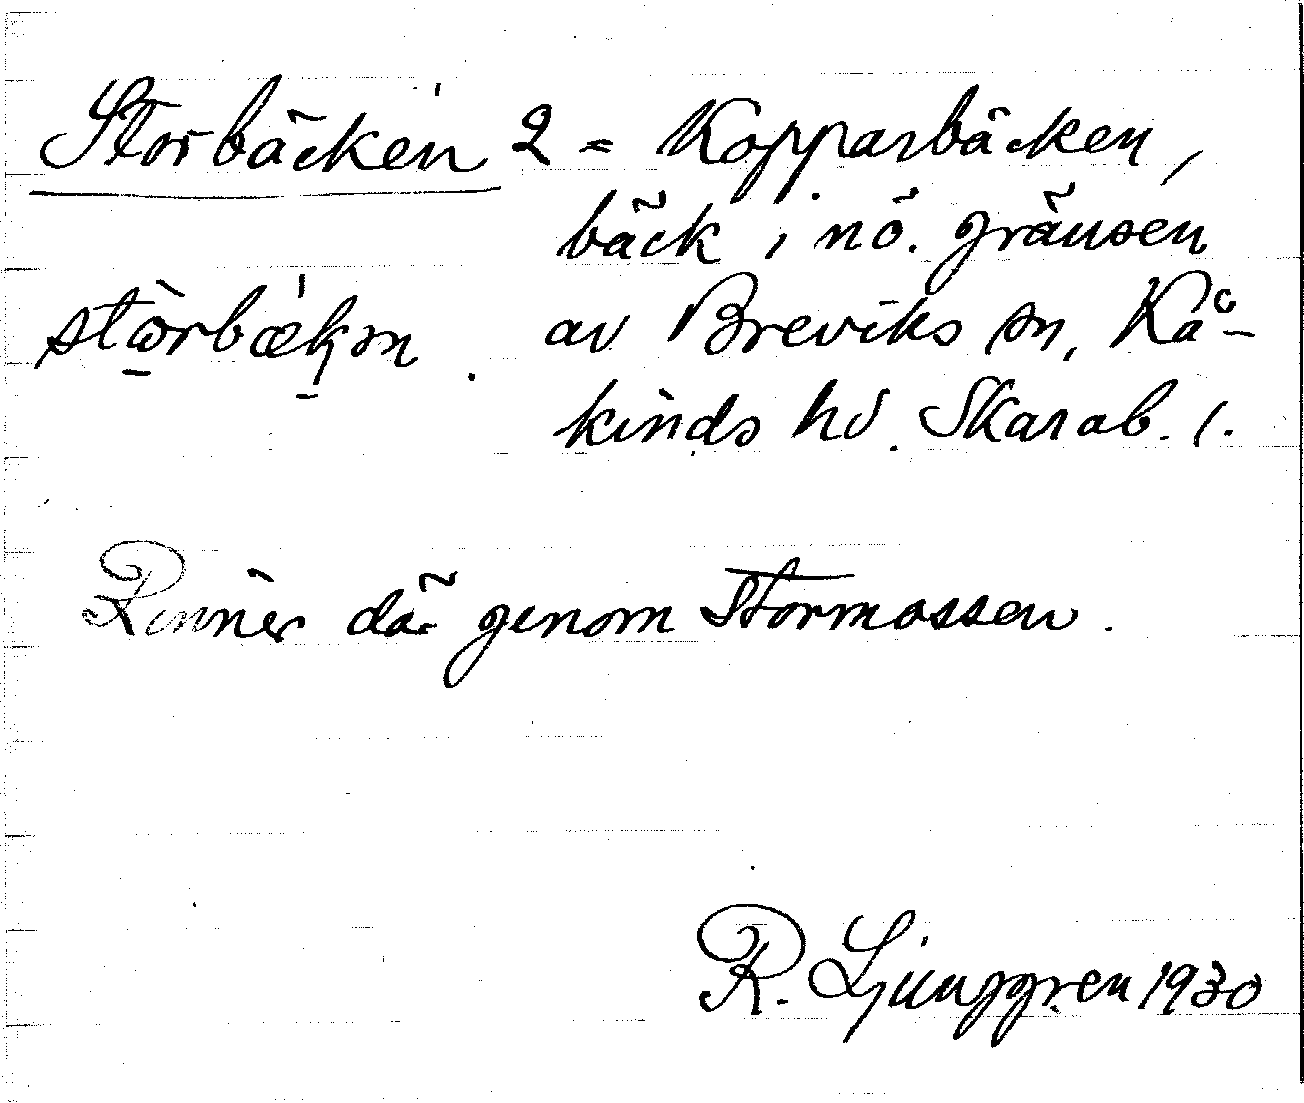 Storbäcken 2 = Kopparbäcken,
bäck i nö. gränsen
av Breviks sn, Kå-
kinds hd. Skarab. l.
Rinner där genom Stormossen.
R. Ljunggren 1930